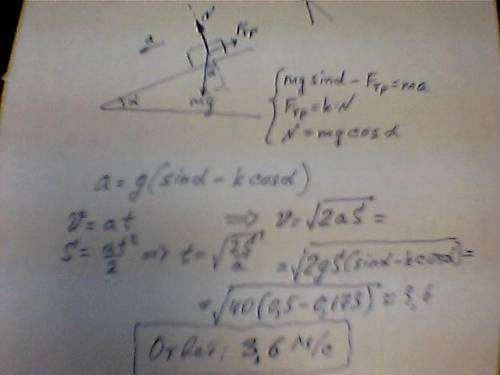 N
a
Fтр
α
α
mg
mg sinα - Fтр = ma
Fтр = k·N
N = mg cosα
a = g(sinα - k cosα)
v = at => v = √2aS =
S = at²/2 => t = √2S/a = √2gS(sinα - k cosα) =
= √40(0,5 - 0,173) ≈ 3,6
Ответ: 3,6 м/с